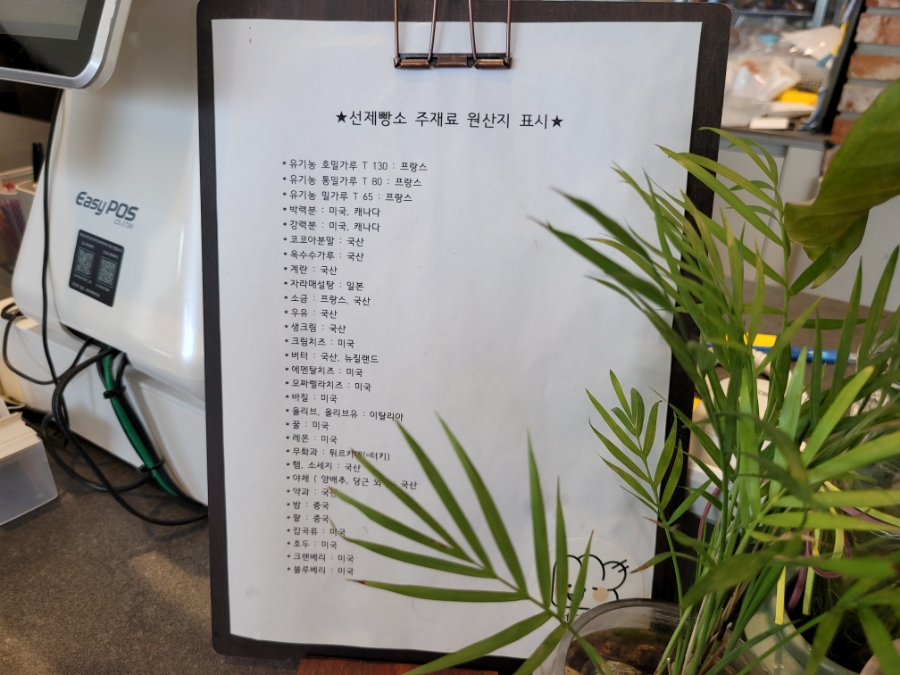 ★선제빵소 주재료 원산지 표시★
* 유기농 호밀가루 T 130 : 프랑스
* 유기농 통밀가루 T 80 : 프랑스
* 유기농 밀가루 T 65 : 프랑스
* 박력분 : 미국, 캐나다
* 강력분 : 미국, 캐나다
* 코코아분말 : 국산
* 옥수수가루 : 국산
* 계란 : 국산
* 자라메설탕 : 일본
* 소금 : 프랑스, 국산
* 우유 : 국산
* 생크림 : 국산
* 크림치즈 : 미국
* 버터 : 국산, 뉴질랜드
* 에멘탈치즈 : 미국
* 모짜렐라치즈 : 미국
* 바질 : 미국
* 올리브, 올리브유 : 이탈리아
* 꿀 : 미국
* 레몬 : 미국
* 무화과 : 튀르키예(=터키)
* 햄, 소세지 : 국산
* 야채 ( 양배추, 당근 외 : 국산
* 약과 : 국산
* 밤 : 중국
* 팥 : 중국
* 잡곡류 : 미국
* 호두 : 미국
* 크랜베리 : 미국
* 블루베리 : 미국
Easy POS